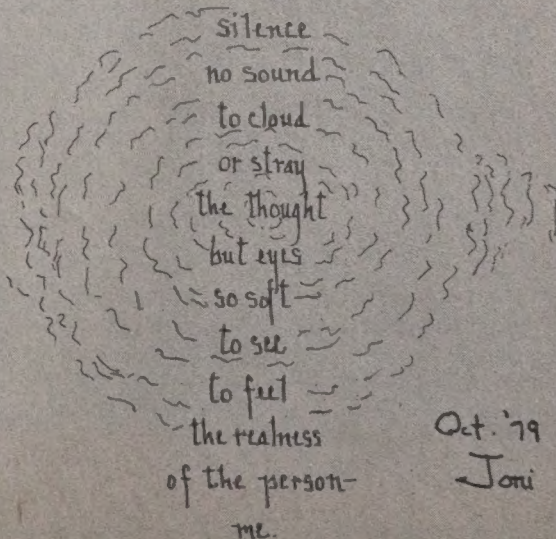 silence
no sound
to cloud
or stray
the thought
but eyes
so soft
to see
to feel
the realness
of the person-
me.
Oct. '79
Joni